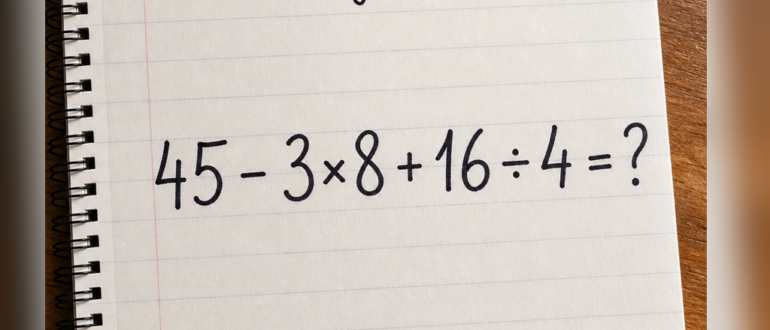 45 - 3×8 + 16 ÷ 4 = ?